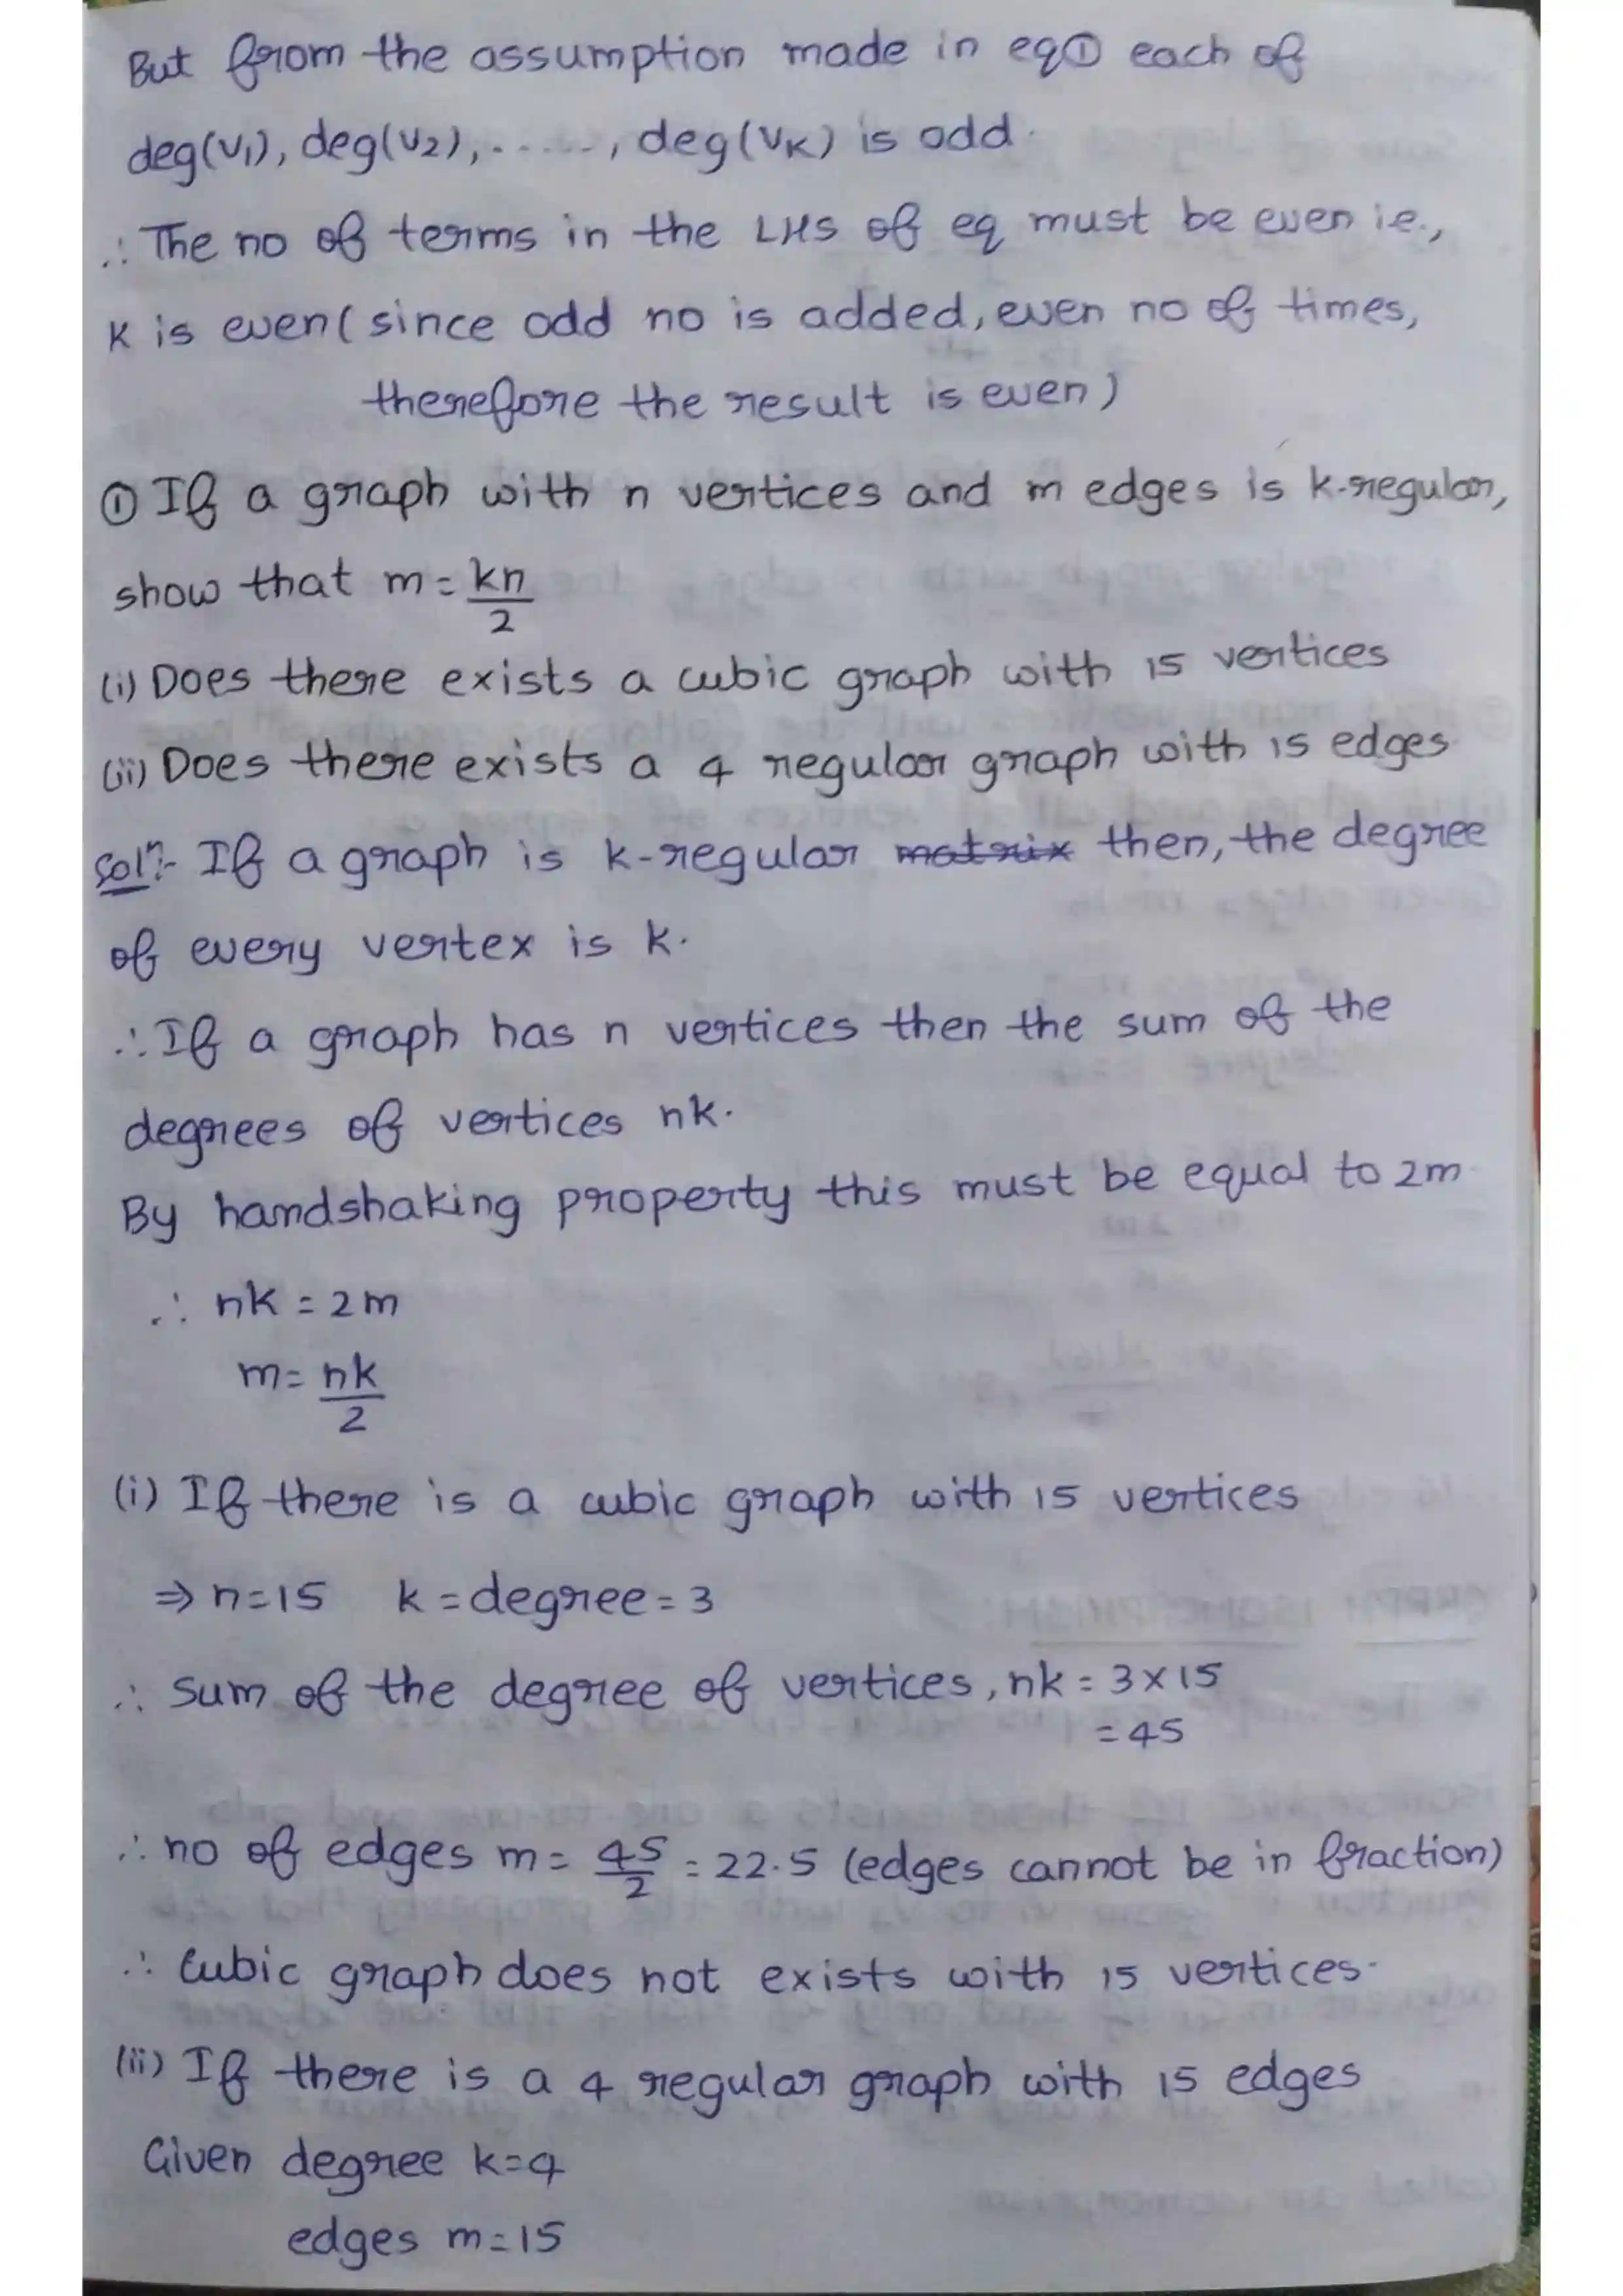 But from the assumption made in eq① each of
deg(V1), deg(V2),......, deg(VK) is odd.
∴ The no of terms in the LHS of eq must be even i.e.,
K is even (since odd no is added, even no of times,
therefore the result is even)
① If a graph with n vertices and m edges is k-regular,
show that m = kn/2
(i) Does there exists a cubic graph with 15 vertices
(ii) Does there exists a 4 regular graph with 15 edges
Solⁿ:- If a graph is k-regular matrix then, the degree
of every vertex is k.
∴ If a graph has n vertices then the sum of the
degrees of vertices nk.
By handshaking property this must be equal to 2m
∴ nk = 2m
m = nk/2
(i) If there is a cubic graph with 15 vertices
⇒ n=15 k = degree = 3
∴ sum of the degree of vertices, nk = 3 x 15
= 45
∴ no of edges m = 45/2 = 22.5 (edges cannot be in fraction)
∴ Cubic graph does not exists with 15 vertices.
(ii) If there is a 4 regular graph with 15 edges
Given degree k=4
edges m=15